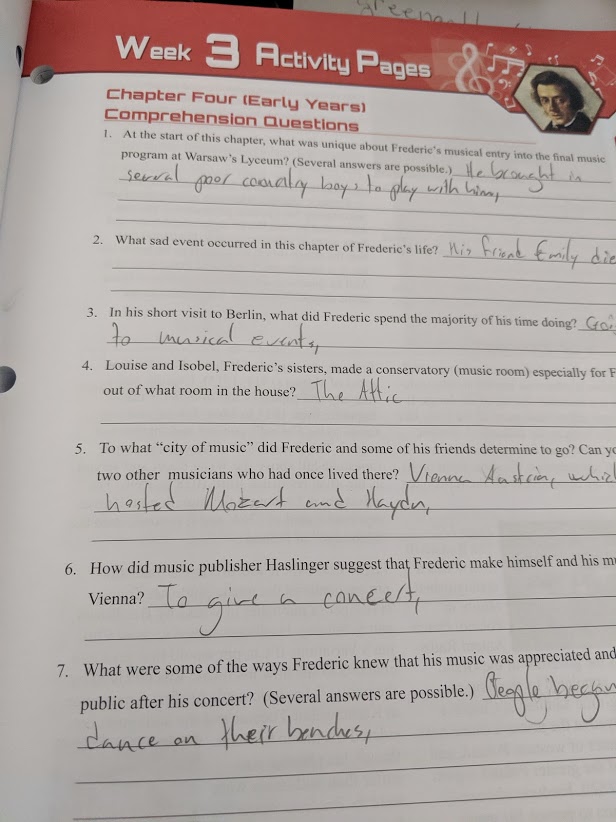 Greenall
Week 3 Activity Pages
Chapter Four (Early Years)
Comprehension Questions
1. At the start of this chapter, what was unique about Frederic's musical entry into the final music
program at Warsaw's Lyceum? (Several answers are possible.) He brought in
several poor country boys to play with him,
2. What sad event occurred in this chapter of Frederic's life? His friend Emily die
3. In his short visit to Berlin, what did Frederic spend the majority of his time doing? Goi
to musical events,
4. Louise and Isobel, Frederic's sisters, made a conservatory (music room) especially for F
out of what room in the house? The Attic
5. To what "city of music" did Frederic and some of his friends determine to go? Can yo
two other musicians who had once lived there? Vienna Austria, which
hosted Mozart and Haydn,
6. How did music publisher Haslinger suggest that Frederic make himself and his mu
Vienna? To give a concert,
7. What were some of the ways Frederic knew that his music was appreciated and
public after his concert? (Several answers are possible.) People began
dance on their benches,